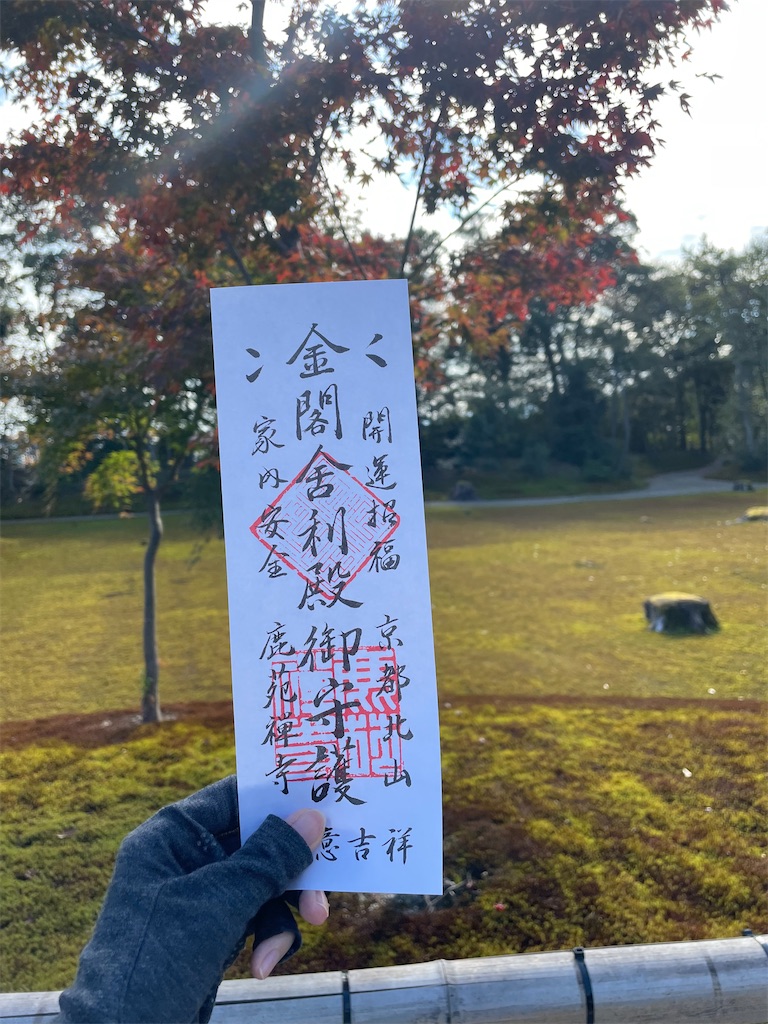 開運招福 京都北山
金閣舎利殿御守護
家内安全 鹿苑禅寺
意吉祥